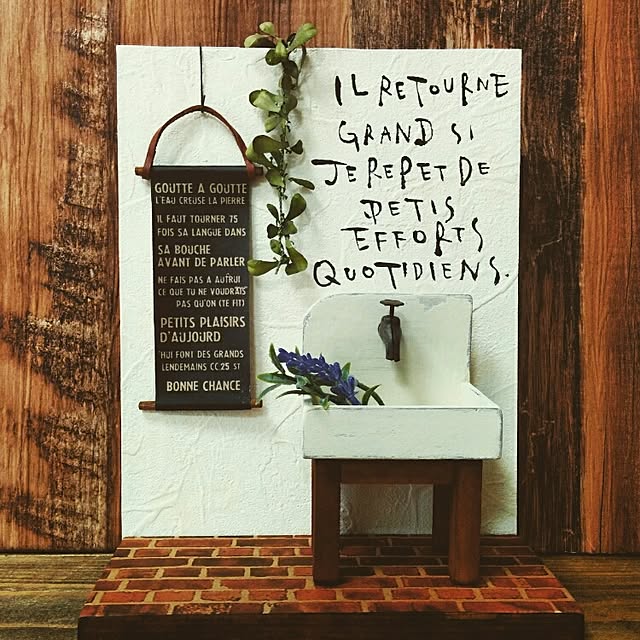 GOUTTE A GOUTTE
L'EAU CREUSE LA PIERRE
IL FAUT TOURNER 75
FOIS SA LANGUE DANS
SA BOUCHE
AVANT DE PARLER
NE FAIS PAS A AUTRUI
CE QUE TU NE VOUDRAIS
PAS QU'ON (TE FIT)
PETITS PLAISIRS
D'AUJOURD
'HUI FONT DES GRANDS
LENDEMAINS CC:25 ST
BONNE CHANCE
IL RETOURNE
GRAND SI
JE REPET DE
PETIS
EFFORTS
QUOTIDIENS.